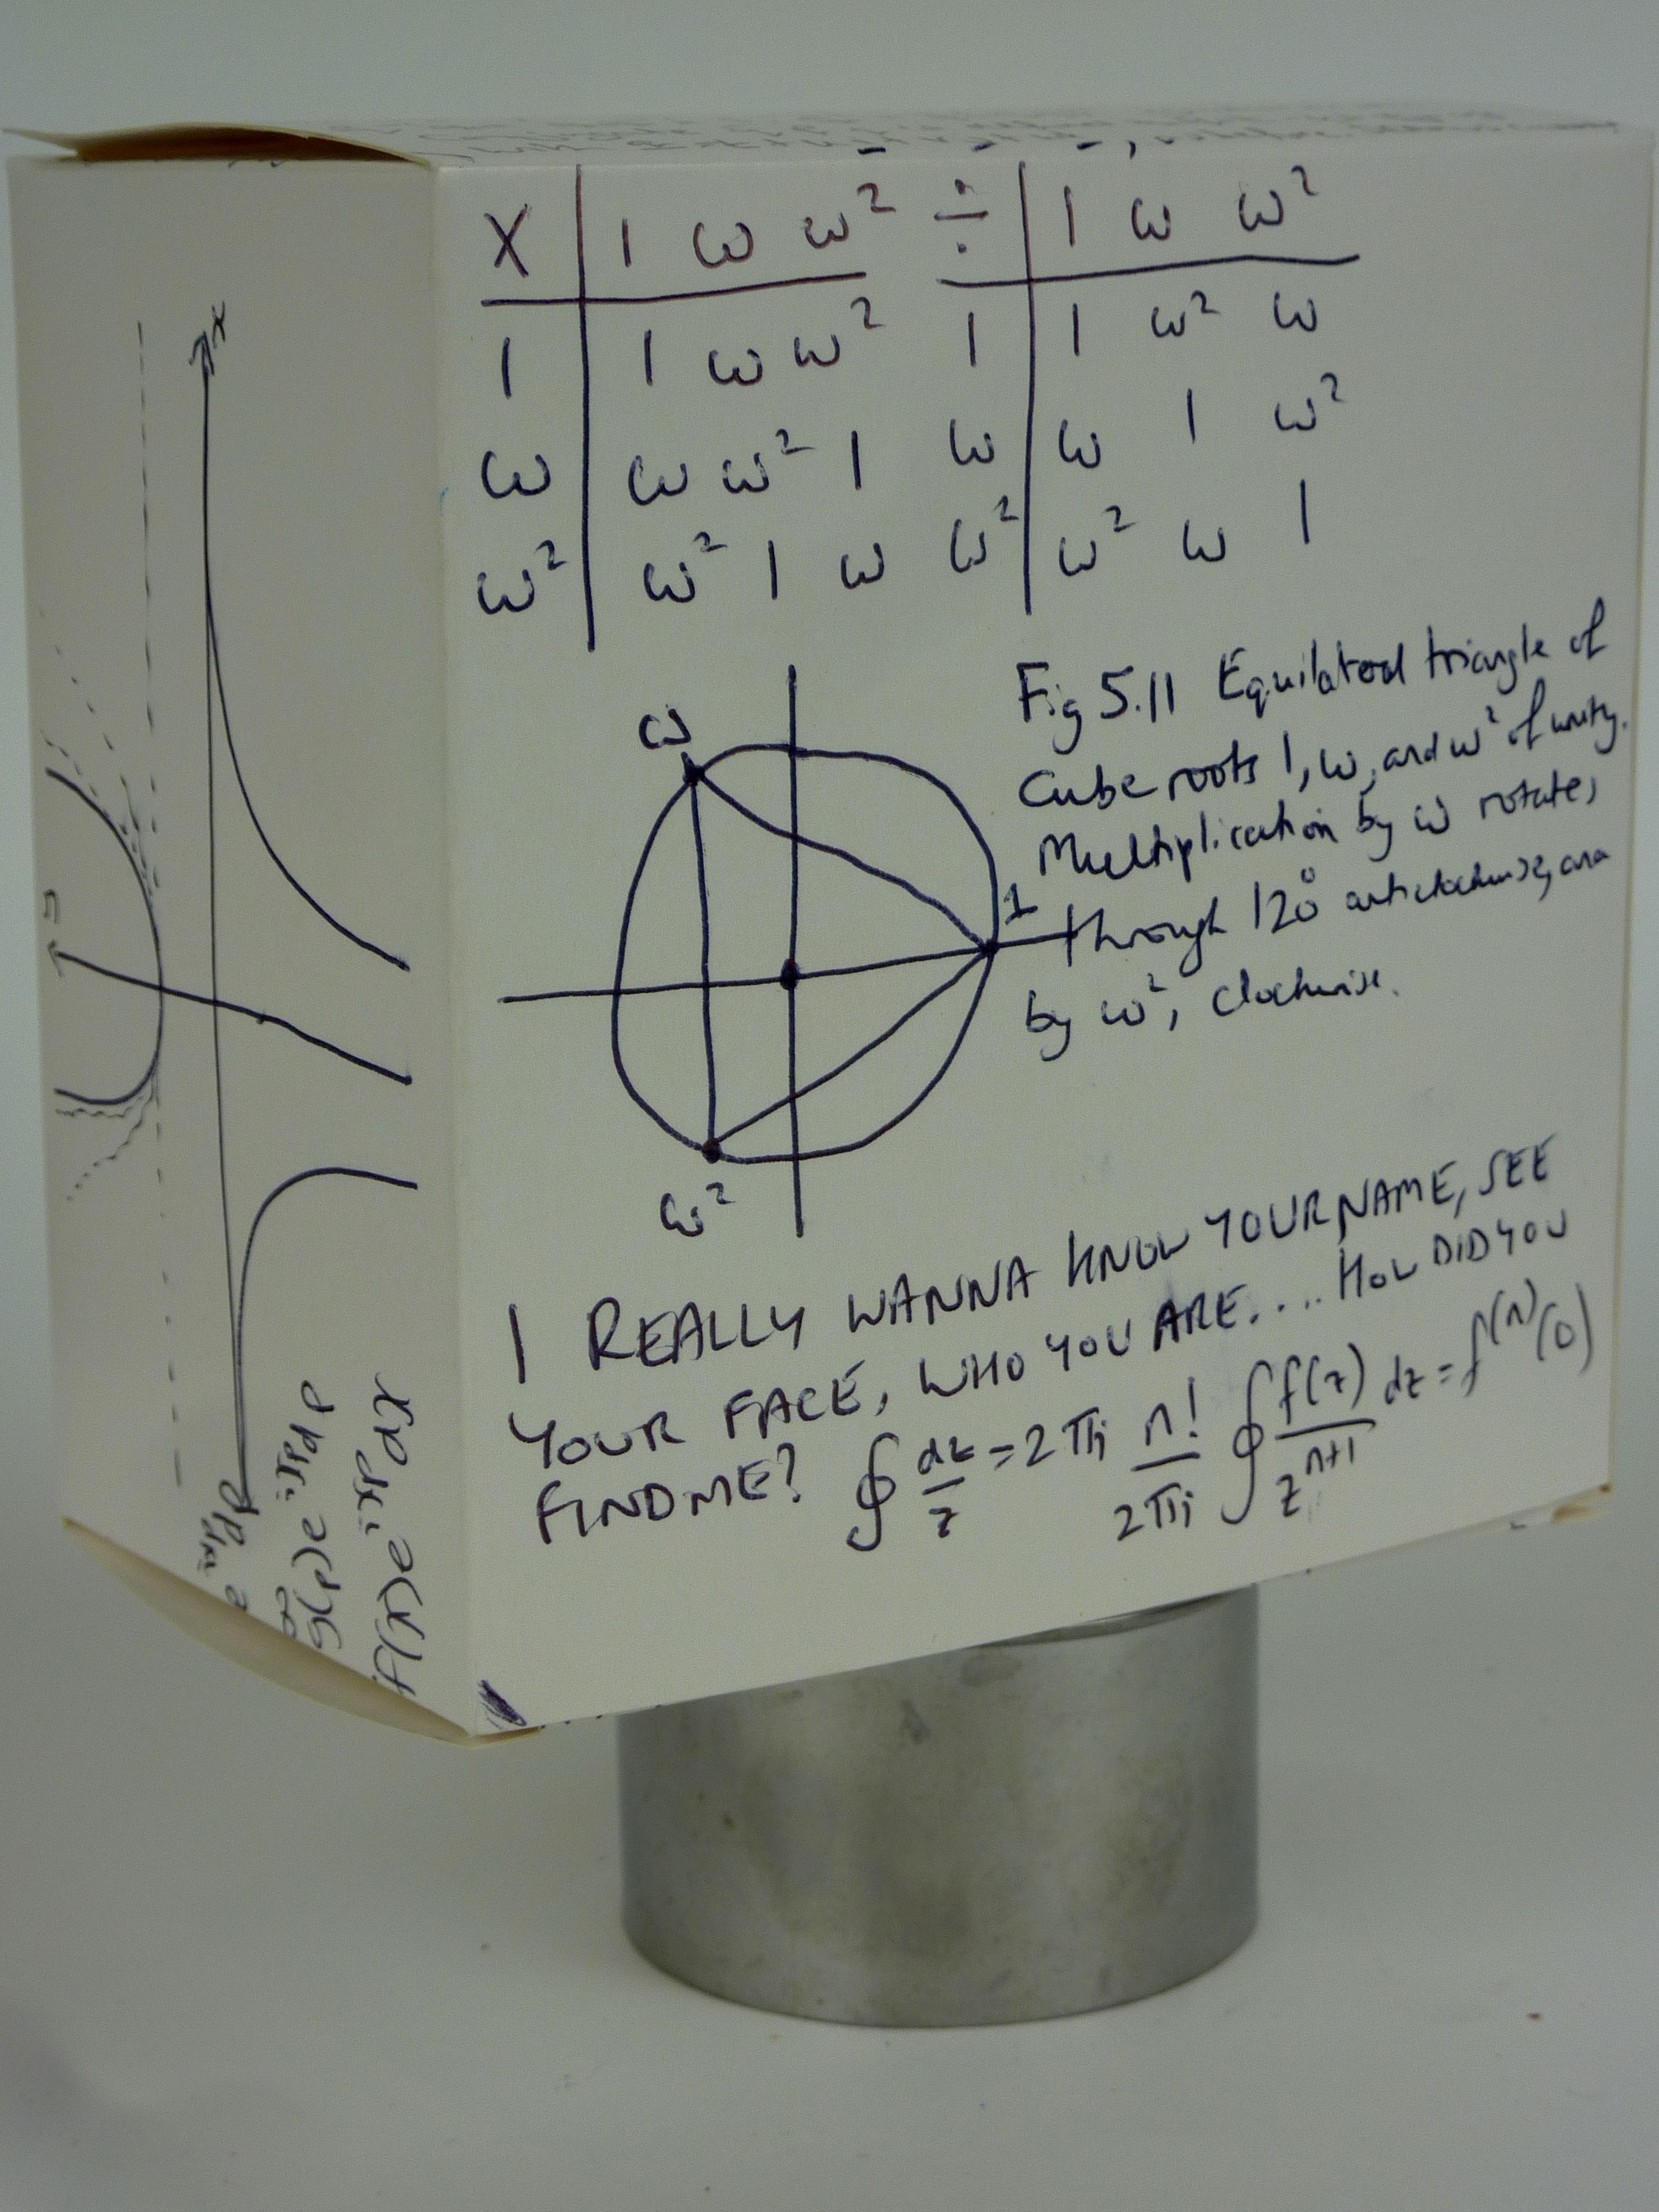 X | 1 ω ω²   ÷ | 1 ω ω²
1 | 1 ω ω²   1 | 1 ω² ω
ω | ω ω² 1   ω | ω 1 ω²
ω² | ω² 1 ω   ω² | ω² ω 1
Fig 5.11 Equilateral triangle of
Cube roots 1, ω, and ω² of unity.
Multiplication by ω rotates
through 120° anticlockwise, and
by ω², clockwise.
ω
1
ω²
I REALLY WANNA KNOW YOUR NAME, SEE
YOUR FACE, WHO YOU ARE.... HOW DID YOU
FIND ME? ∮ dz/z = 2πi n!/2πi ∮ f(z)/z^(n+1) dz = f^(n)(0)
x
g(p)e^(ixp) dp
f(x)e^(ixp) dx